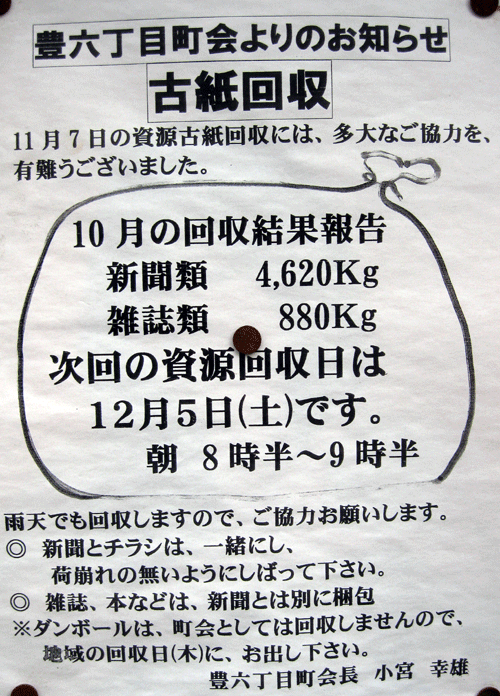 豊六丁目町会よりのお知らせ
古紙回収
11月7日の資源古紙回収には、多大なご協力を、
有難うございました。
10月の回収結果報告
新聞類 4,620Kg
雑誌類 880Kg
次回の資源回収日は
12月5日(土)です。
朝 8時半～9時半
雨天でも回収しますので、ご協力お願いします。
◎ 新聞とチラシは、一緒にし、
荷崩れの無いようにしばって下さい。
◎ 雑誌、本などは、新聞とは別に梱包
※ダンボールは、町会としては回収しませんので、
地域の回収日(木)に、お出し下さい。
豊六丁目町会長 小宮 幸雄